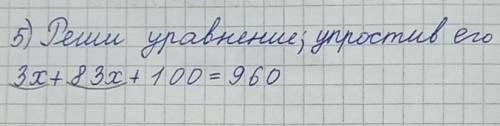 5) Реши уравнение; упростив его
3x + 83x + 100 = 960